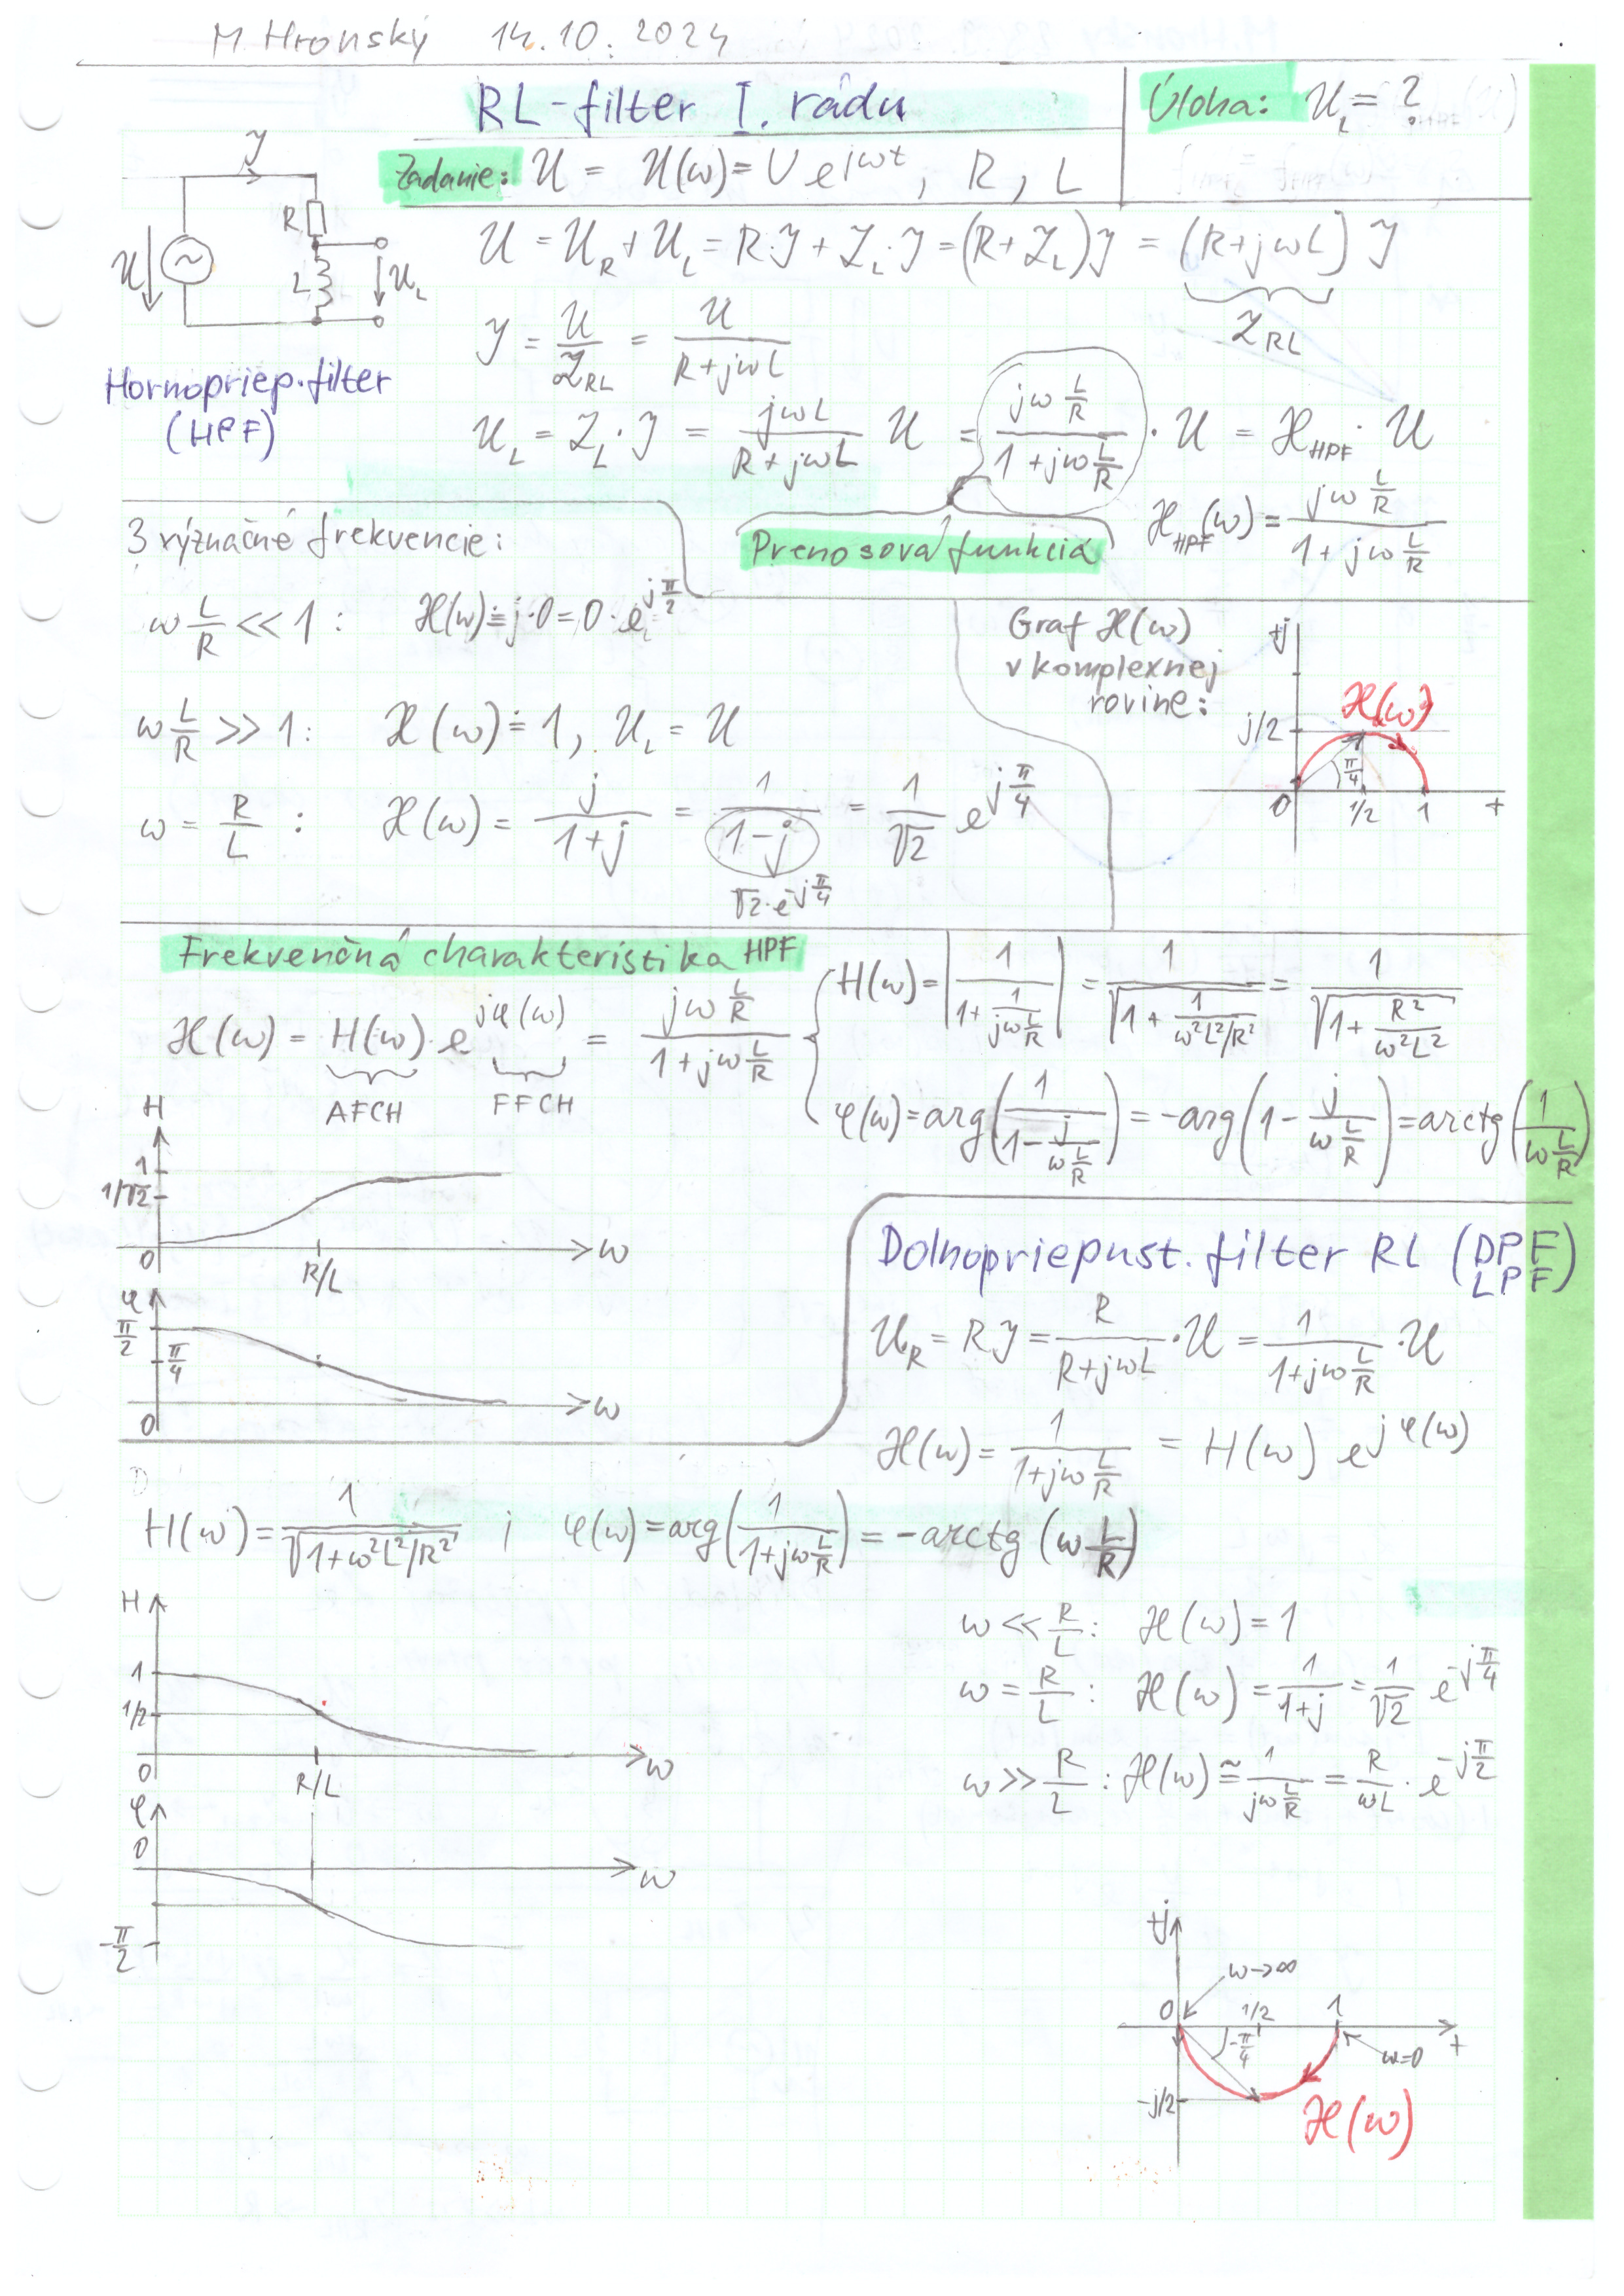 M. Hronský 14.10.2024
RL-filter I. rádu
Úloha: U_L = ?
Zadanie: U = U(ω) = U e^{jωt}, R, L
I
R
U
L
U_L
Hornopriep. filter
(HPF)
U = U_R + U_L = R·I + Z_L·I = (R+Z_L)I = (R+jωL) I
Z_RL
I = U/Z_RL = U/(R+jωL)
U_L = Z_L·I = jωL/(R+jωL) U = (jω L/R)/(1+jω L/R) · U = H_HPF · U
Prenosová funkcia
H_HPF(ω) = (jω L/R)/(1+jω L/R)
3 význačné frekvencie:
ω L/R << 1: H(ω) ≐ j·0 = 0·e^{jπ/2}
ω L/R >> 1: H(ω) ≐ 1, U_L = U
ω = R/L : H(ω) = j/(1+j) = 1/(1-j) = 1/√2 e^{jπ/4}
√2·e^{-jπ/4}
Graf H(ω)
v komplexnej
rovine:
+j
H(ω)
j/2
π/4
0 1/2 1 +
Frekvenčná charakteristika HPF
H(ω) = H(ω)·e^{jφ(ω)} = (jω L/R)/(1+jω L/R)
AFCH FFCH
H(ω) = |1/(1+1/(jω L/R))| = 1/√(1+1/(ω²L²/R²)) = 1/√(1+R²/(ω²L²))
φ(ω) = arg(1/(1-j/(ω L/R))) = -arg(1-j/(ω L/R)) = arctg(1/(ω L/R))
H
1
1/√2
0 R/L ω
φ
π/2
π/4
0 ω
Dolnopriepust. filter RL (DPF
LPF)
U_R = R I = R/(R+jωL) · U = 1/(1+jω L/R) · U
H(ω) = 1/(1+jω L/R) = H(ω) e^{jφ(ω)}
H(ω) = 1/√(1+ω²L²/R²) ; φ(ω) = arg(1/(1+jω L/R)) = -arctg (ω L/R)
H
1
1/2
0 R/L ω
φ
0
ω
-π/2
ω << R/L: H(ω) = 1
ω = R/L : H(ω) = 1/(1+j) = 1/√2 e^{-jπ/4}
ω >> R/L : H(ω) ≅ 1/(jω L/R) = R/(ωL) · e^{-jπ/2}
+j
ω→∞
0 1/2 1 +
-π/4
ω=0
-j/2
H(ω)